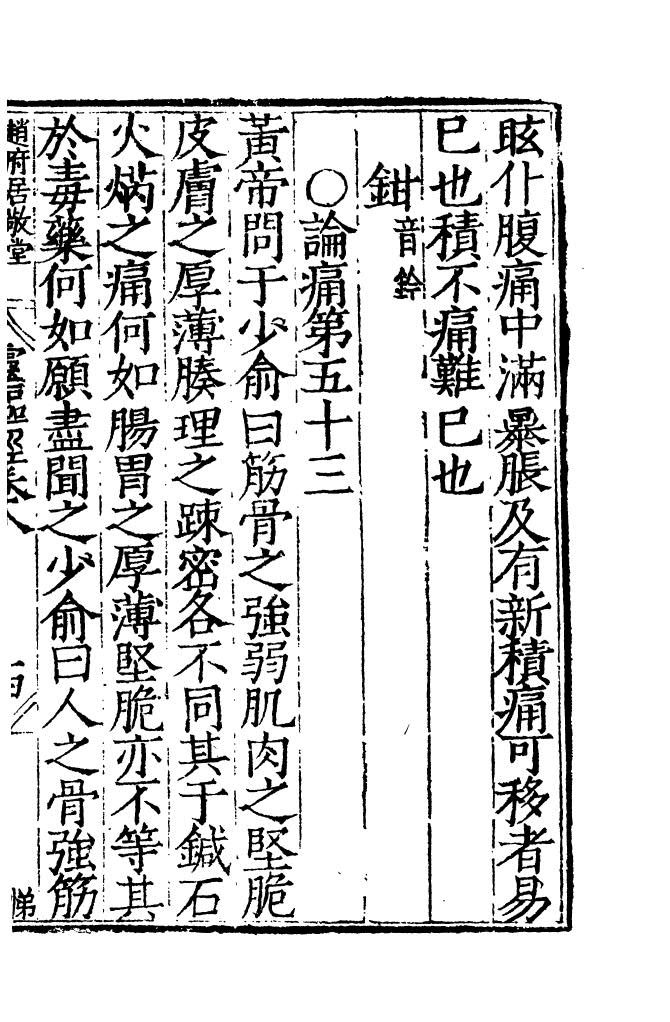 眩仆腹痛中滿暴脹及有新積痛可移者易
已也積不痛難已也
鉗音鈐
○論痛第五十三
黃帝問于少俞曰筋骨之強弱肌肉之堅脆
皮膚之厚薄腠理之踈密各不同其于鍼石
火焫之痛何如腸胃之厚薄堅脆亦不等其
於毒藥何如願盡聞之少俞曰人之骨強筋
趙府居敬堂
卷八
悌